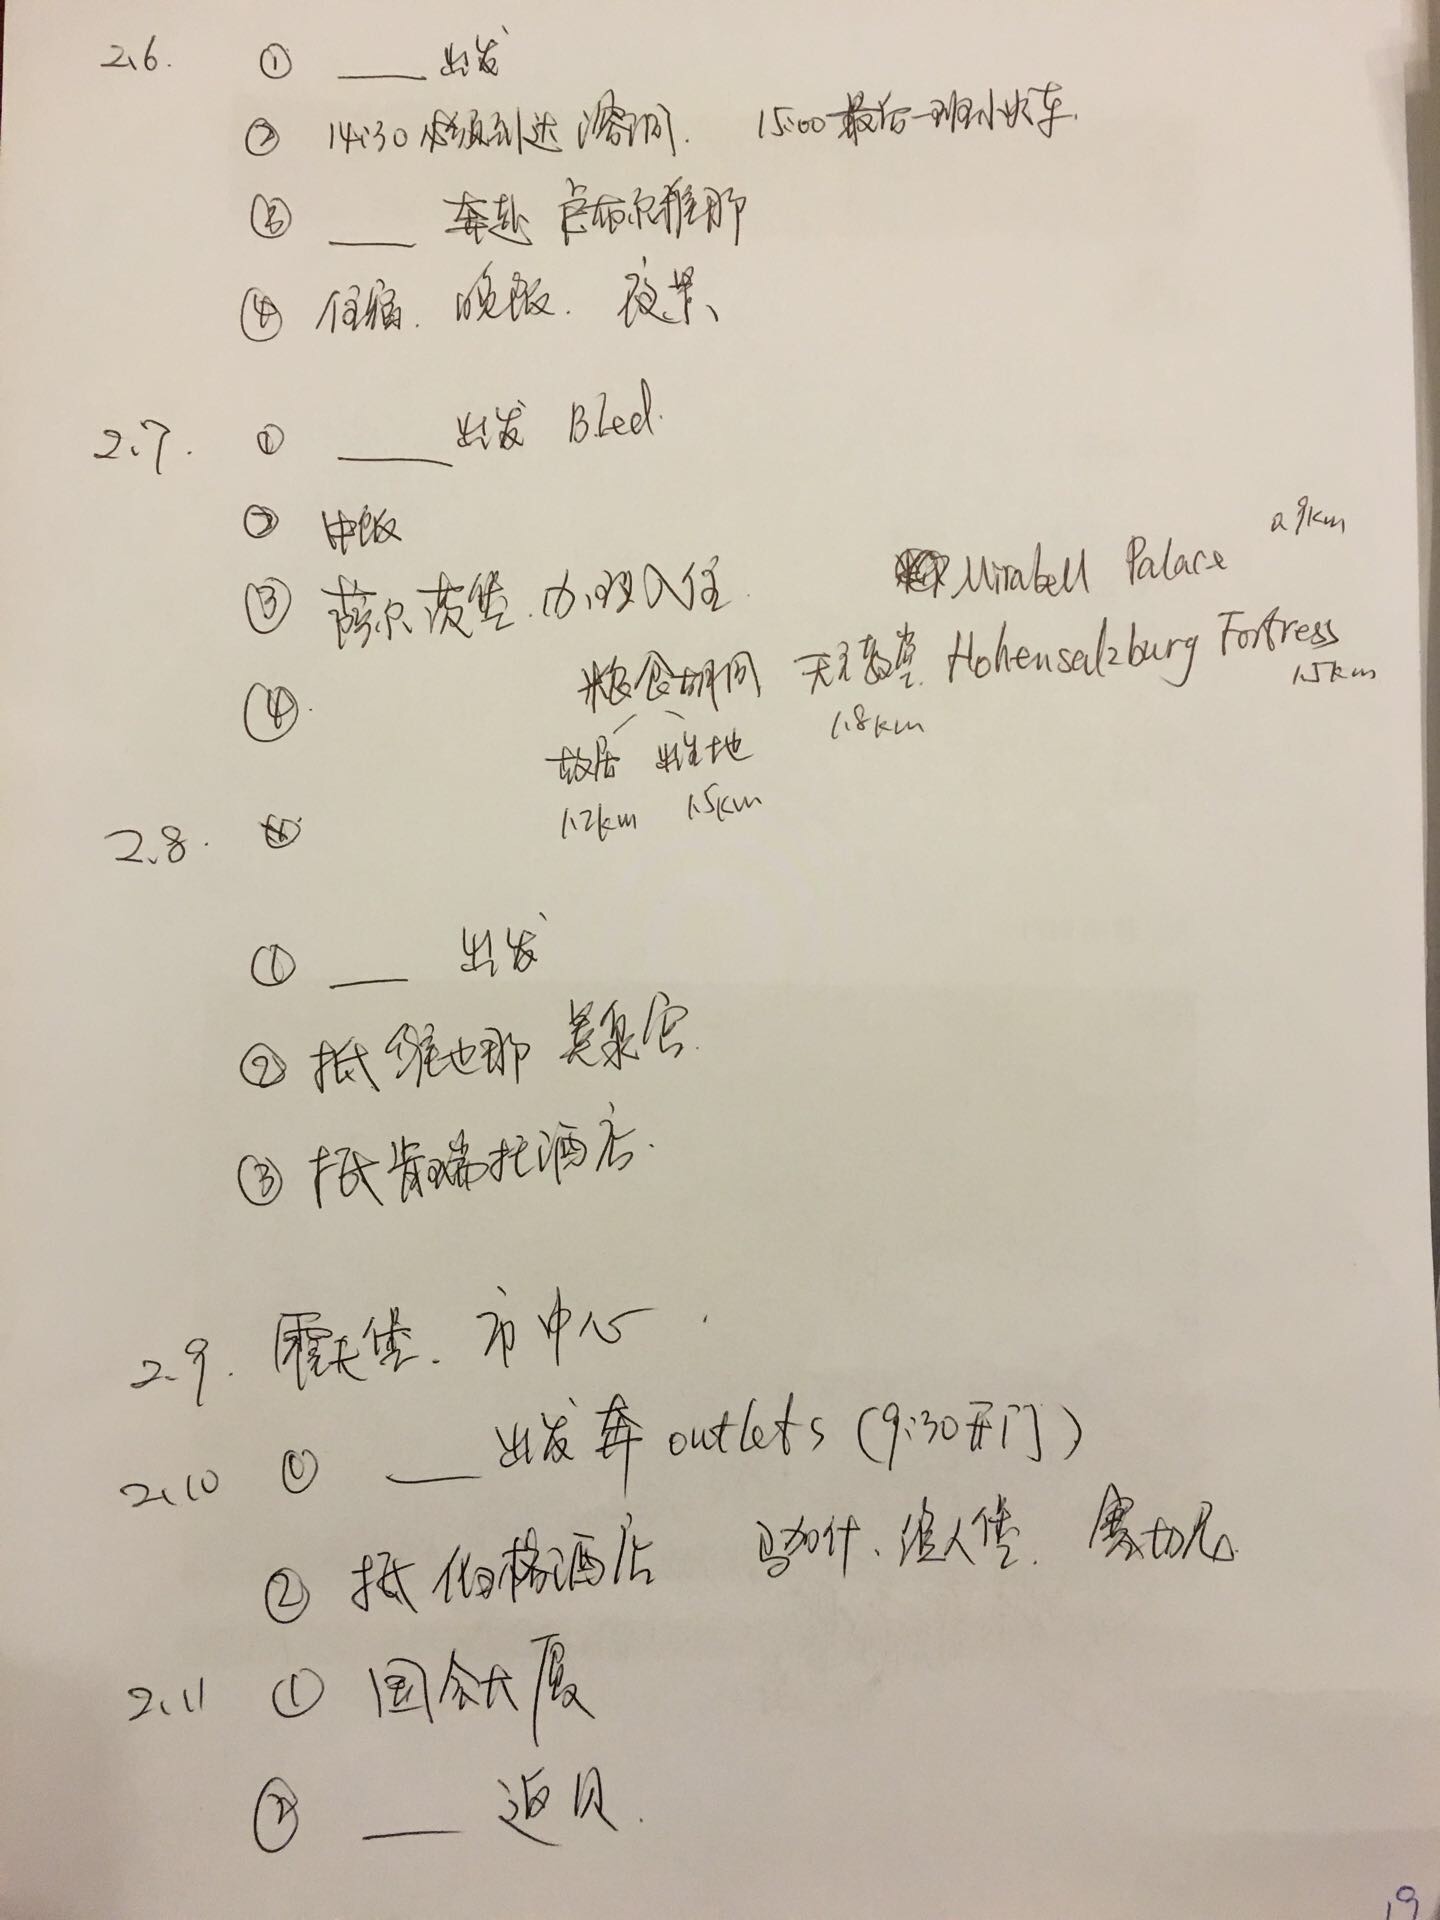 2.6. ① ____ 出发
② 14:30 必须到达溶洞. 15:00 最后一班小火车.
③ ____ 奔赴 卢布尔雅那
④ 住宿. 晚饭. 夜景、
2.7. ① ____ 出发 Bled.
② 中饭
0.9km
③ 萨尔茨堡.办理入住. Mirabell Palace
④. 粮食胡同 天主教堂 Hohensalzburg Fortress
1.8km 1.5km
故居 出生地
1.2km 1.5km
2.8.
① ____ 出发
② 抵维也那 美泉宫.
③ 抵肯瑞托酒店.
2.9. 霍夫堡. 市中心.
2.10 ① ____ 出发奔 outlets (9:30开门)
② 抵伯格酒店 马加什、渔人堡. 塞切尼.
2.11 ① 国会大厦
② ____ 返贝.
19